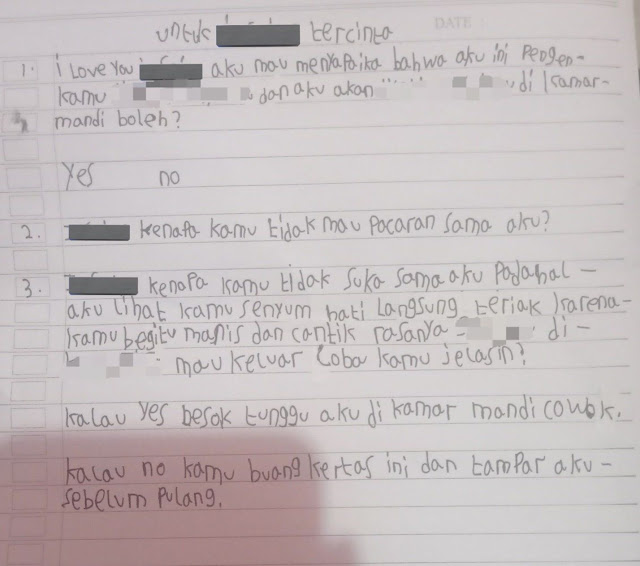 DATE
untuk tercinta
1. i Love You aku mau menyapaika bahwa aku ini Pengen-
kamu dan aku akan di kamar-
mandi boleh?
Yes no
2. kenapa kamu tidak mau pacaran sama aku?
3. kenapa kamu tidak suka sama aku Padahal -
aku lihat kamu senyum hati Langsung teriak karena-
kamu begitu manis dan cantik rasanya di -
mau keluar Coba kamu jelasin?
kalau yes besok tunggu aku di kamar mandi cowok.
kalau no kamu buang kertas ini dan tampar aku -
sebelum pulang.